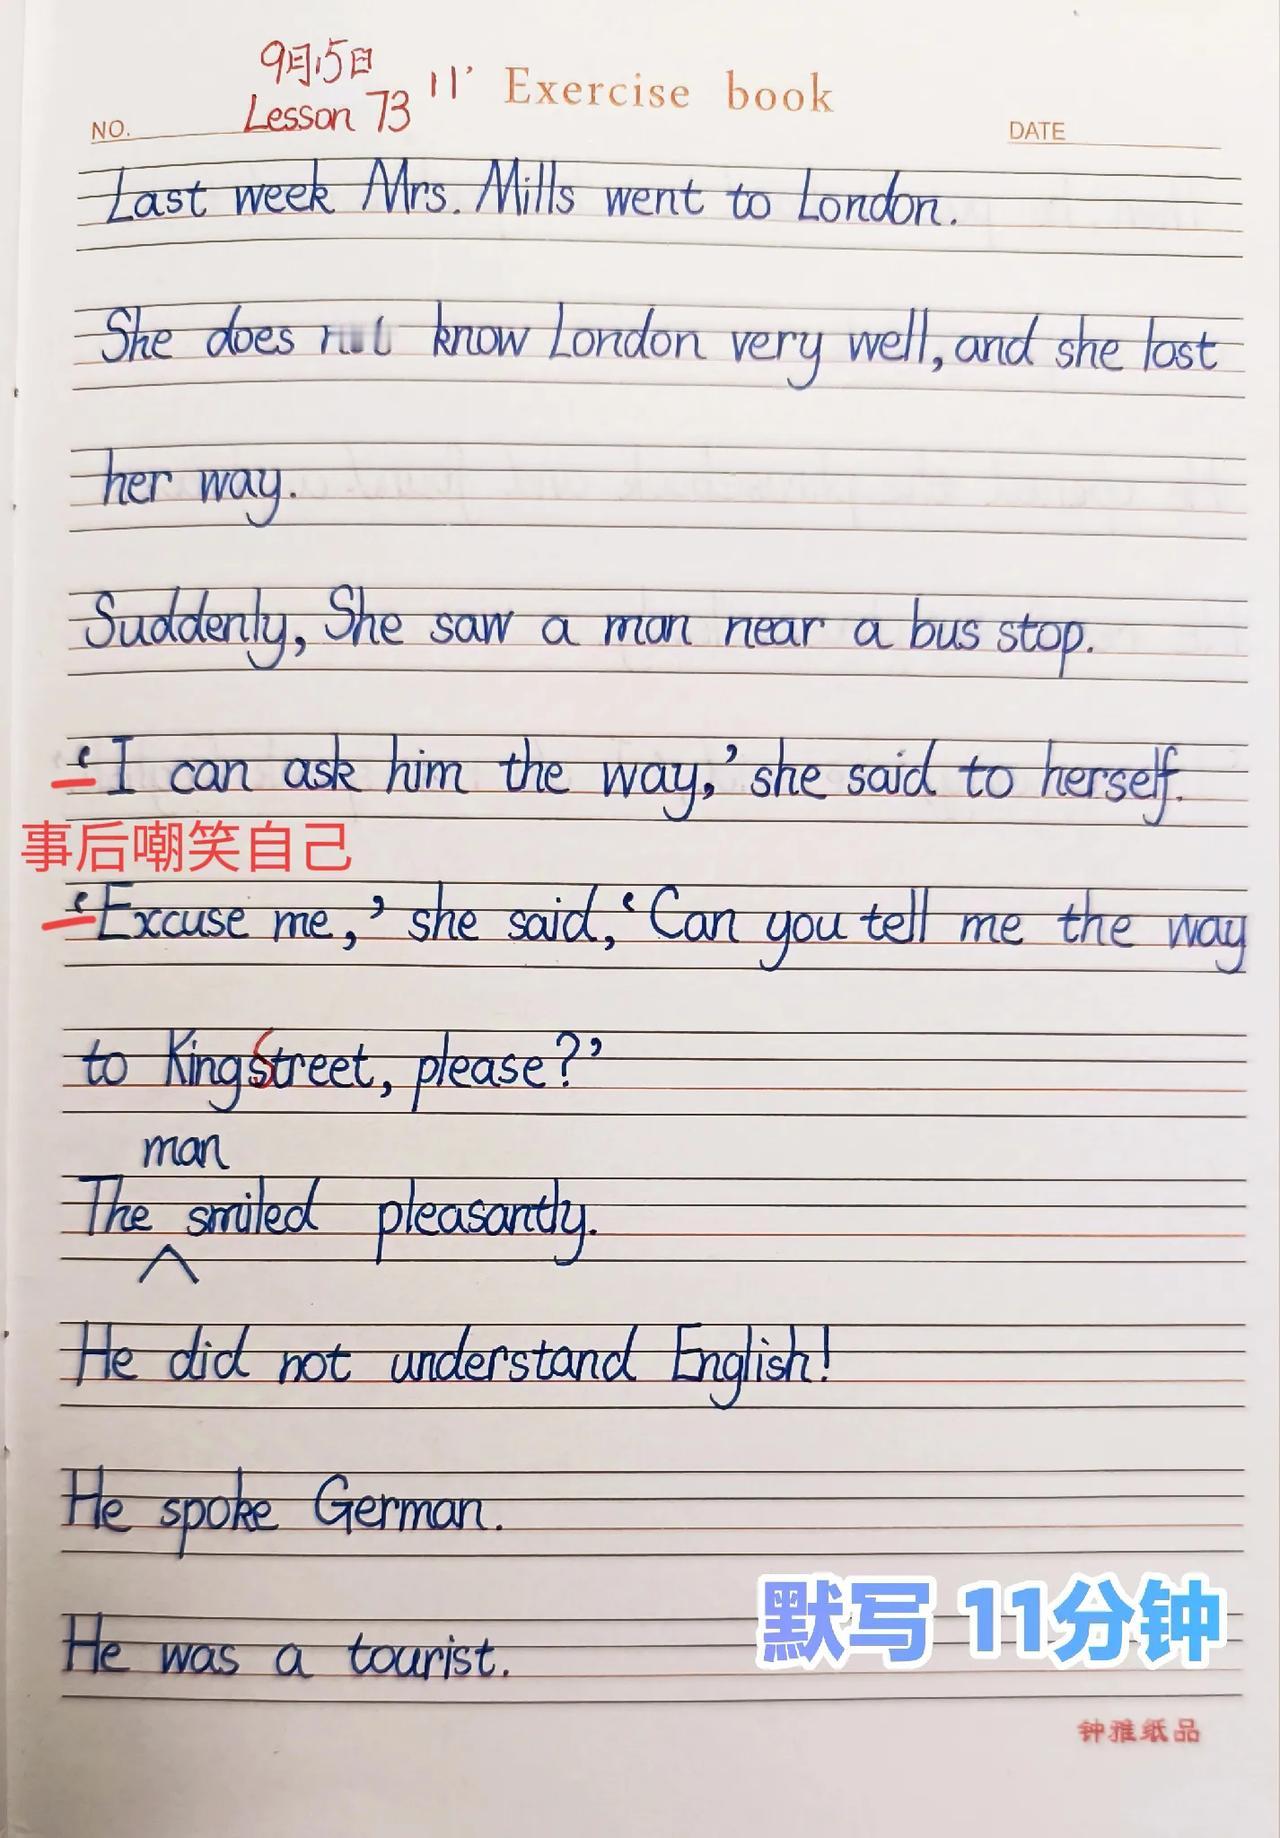 9月15日
Lesson 73 11' Exercise book
NO. DATE
Last week Mrs. Mills went to London.
She does know London very well, and she lost
her way.
Suddenly, She saw a man near a bus stop.
‘I can ask him the way,’ she said to herself.
事后嘲笑自己
‘Excuse me,’ she said, ‘Can you tell me the way
to King Street, please?’
man
The smiled pleasantly.
He did not understand English!
He spoke German.
He was a tourist.
默写 11分钟
钟雅纸品